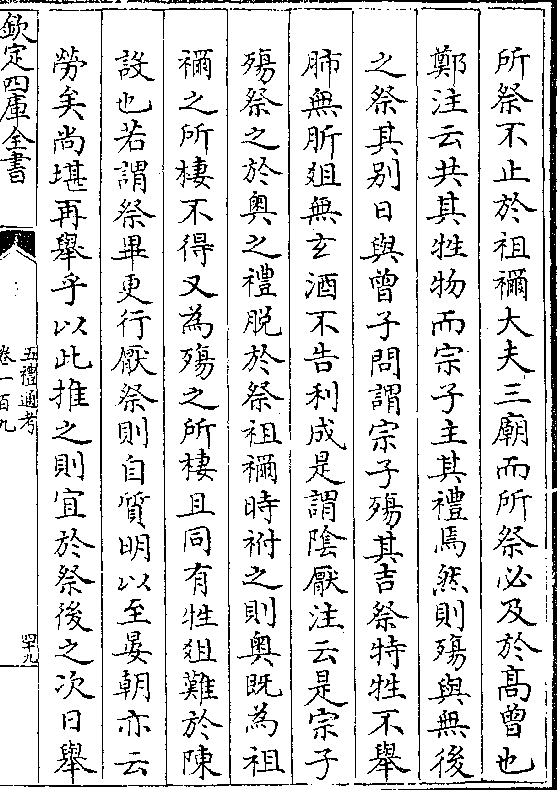 所祭不止於祖禰大夫三廟而所祭必及於髙曾也
鄭注云共其牲物而宗子主其禮焉然則殤與無後
之祭其别日與曾子問謂宗子殤其吉祭特牲不舉
肺無肵俎無玄酒不告利成是謂隂厭注云是宗子
殤祭之於奥之禮脱於祭祖禰時祔之則奥既為祖
禰之所棲不得又為殤之所棲且同有牲俎難於陳
設也若謂祭畢更行厭祭則自質明以至晏朝亦云
勞矣尚堪再舉乎以此推之則宜於祭後之次日舉
欽定四庫全書
五禮通考
卷一百九
四十九